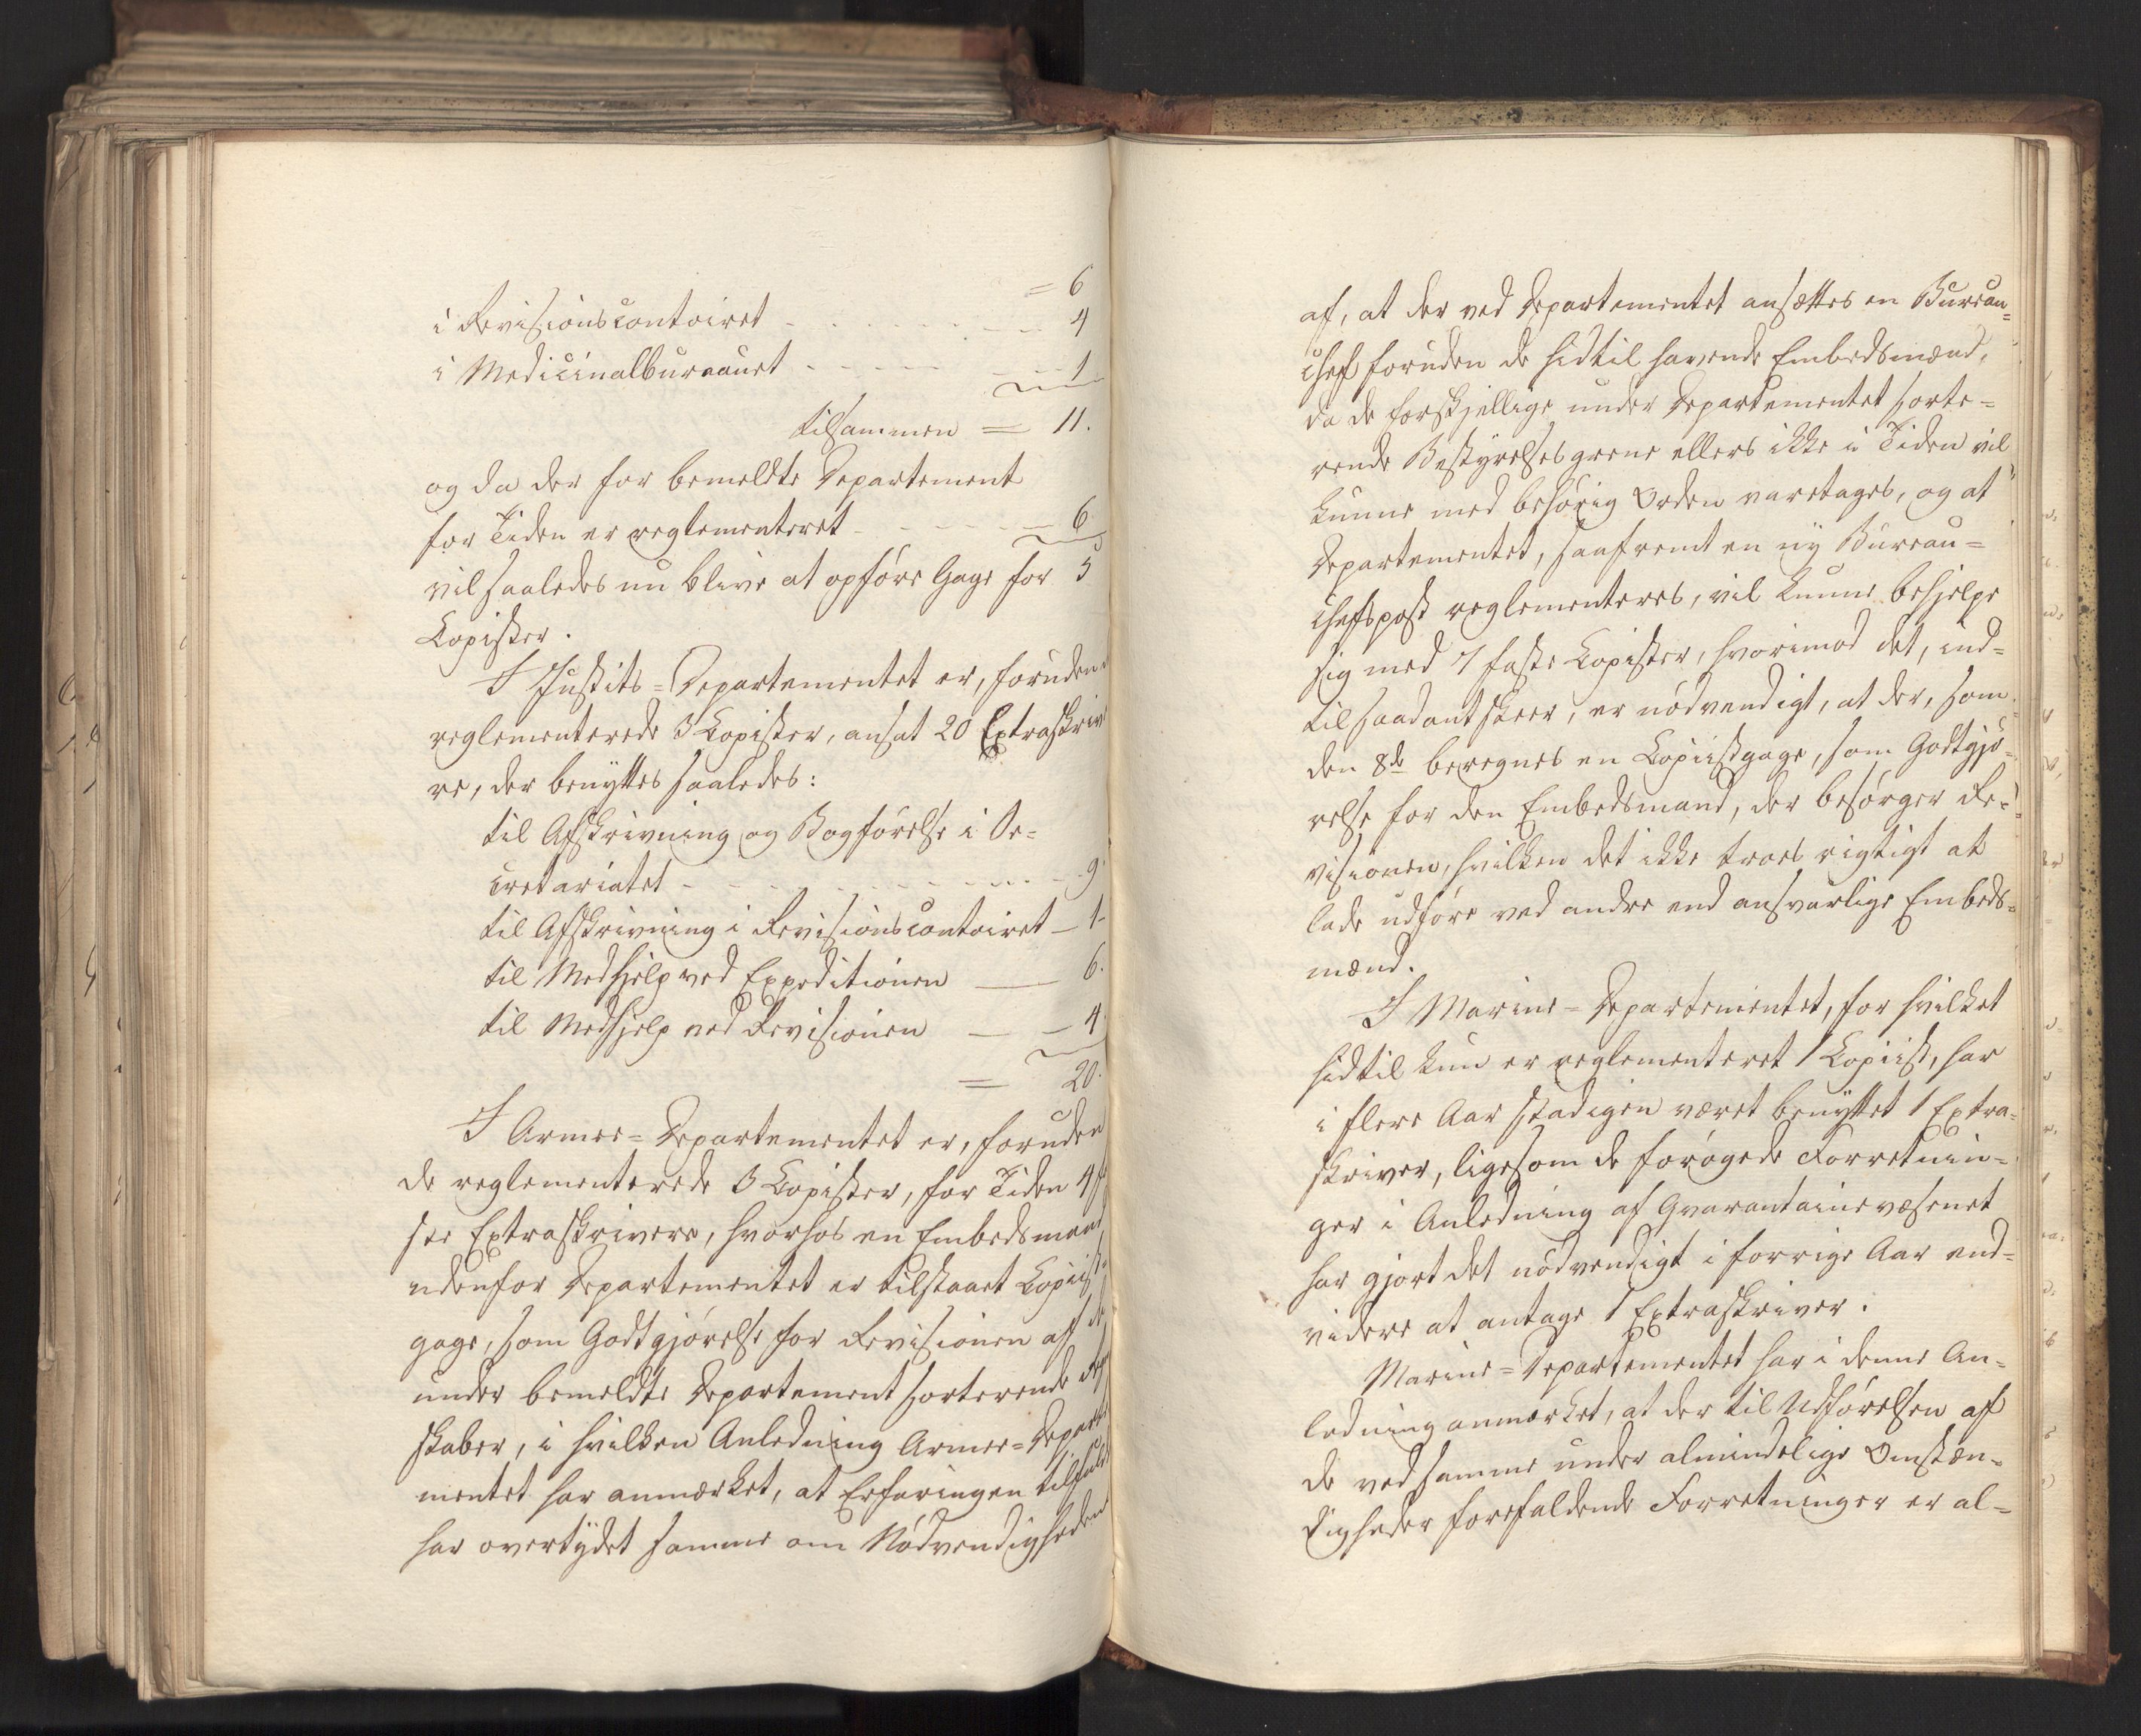 = 6
i Revisionscontoiret - - - - - - - 4
i Medicinalbureauet - - - - - - 1
tilsammen = 11.
og da der for bemeldte Departement
for Tiden er reglementeret - - - - - 6.
vil saaledes nu blive at opføre Gage for 5
Copister.
I Justits=Departementet er, foruden
reglementerede 3 Copister, ansat 20 Extraskrive
re, der benyttes saaledes:
til Afskrivning og Bogførelse i Se=
cretariatet - - - - - - - - - - - 9.
til Afskrivning i Revisionscontoiret - 1-
til Medhjelp ved Expeditionen - 6.
til Medhjelp ved Revisionen - - 4.
= 20.
I Armee=Departementet er, foruden
de reglementerede 3 Copister, for Tiden 4
ste Extraskrivere, hvorhos en Embedsmand
udenfor Departementet er tilstaaet Copiist=
gage, som Godtgjørelse for Revisionen af de
under bemeldte Departement sorterende Regn
skaber, i hvilken Anledning Armee=Departe
mentet har anmærket, at Erfaringen tilfulde
har overtydet samme om Nødvendigheden
af, at der ved Departementet ansættes en Bureau=
chef foruden de hidtil havende Embedsmænd,
da de forskjellige under Departementet sorte=
rende Bestyrelsesgrene ellers ikke i Tiden vil
kunne med behørig Orden varetages, og at
Departementet, saafremt en ny Bureau=
chefspost reglementeres, vil kunne behjelpe
sig med 7 faste Copister, hvorimod det, ind=
til saadant skeer, er nødvendigt, at der, som
den 8de beregnes en Copiistgage, som Godtgjø=
relse for den Embedsmand, der besørger Re=
visionen, hvilken det ikke troes rigtigt at
lade udføre ved andre end ansvarlige Embeds=
mænd.
I Marine=Departementet, for hvilket
hidtil kun er reglementeret 1 Copiist, har
i flere Aar stadigen været benyttet 1 Extra=
skriver, ligesom de forøgede Forretnin=
ger i Anledning af Qvarantainevæsenet
har gjort det nødvendigt i forrige Aar end=
videre at antage 1 Extraskriver.
Marine=Departementet har i denne An=
ledning anmærket, at der til Udførelsen af
de ved samme under almindelige Omstæn=
digheder forefaldende Forretninger er al=